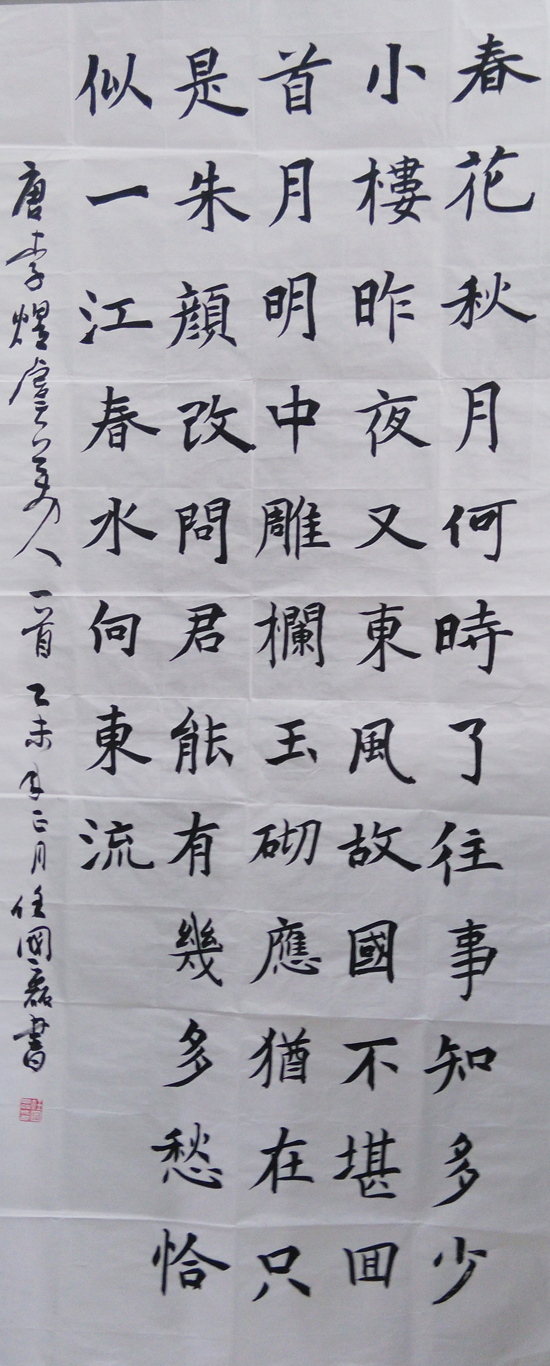 春花秋月何時了往事知多少
小樓昨夜又東風故國不堪回
首月明中雕欄玉砌應猶在只
是朱顔改問君能有幾多愁恰
似一江春水向東流
唐李煜虞美人一首乙未年正月任國磊書